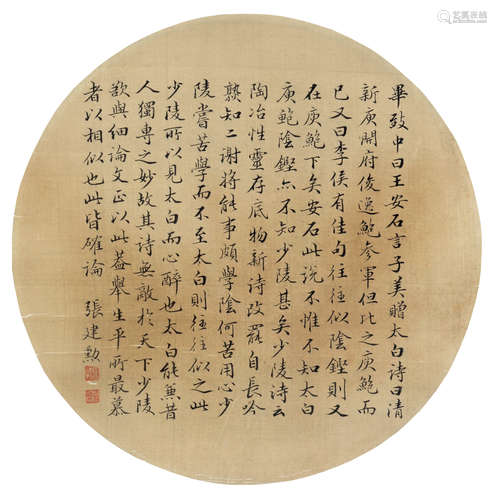 畢致中曰王安石言子美贈太白詩曰清
新庾開府俊逸鮑參軍但比之庾鮑而
已又曰李侯有佳句往往似陰鏗則又
在庾鮑下矣安石此說不惟不知太白
庾鮑陰鏗亦不知少陵甚矣少陵詩云
陶冶性靈存底物新詩改罷自長吟
孰知二謝將能事頗學陰何苦用心少
陵嘗苦學而不至太白則往往似之此
少陵所以見太白而心醉也太白能兼昔
人獨專之妙故其詩無敵於天下少陵
欲與細論文正以此蓋舉生平所最慕
者以相似也此皆確論 張建勲
艺狐在线